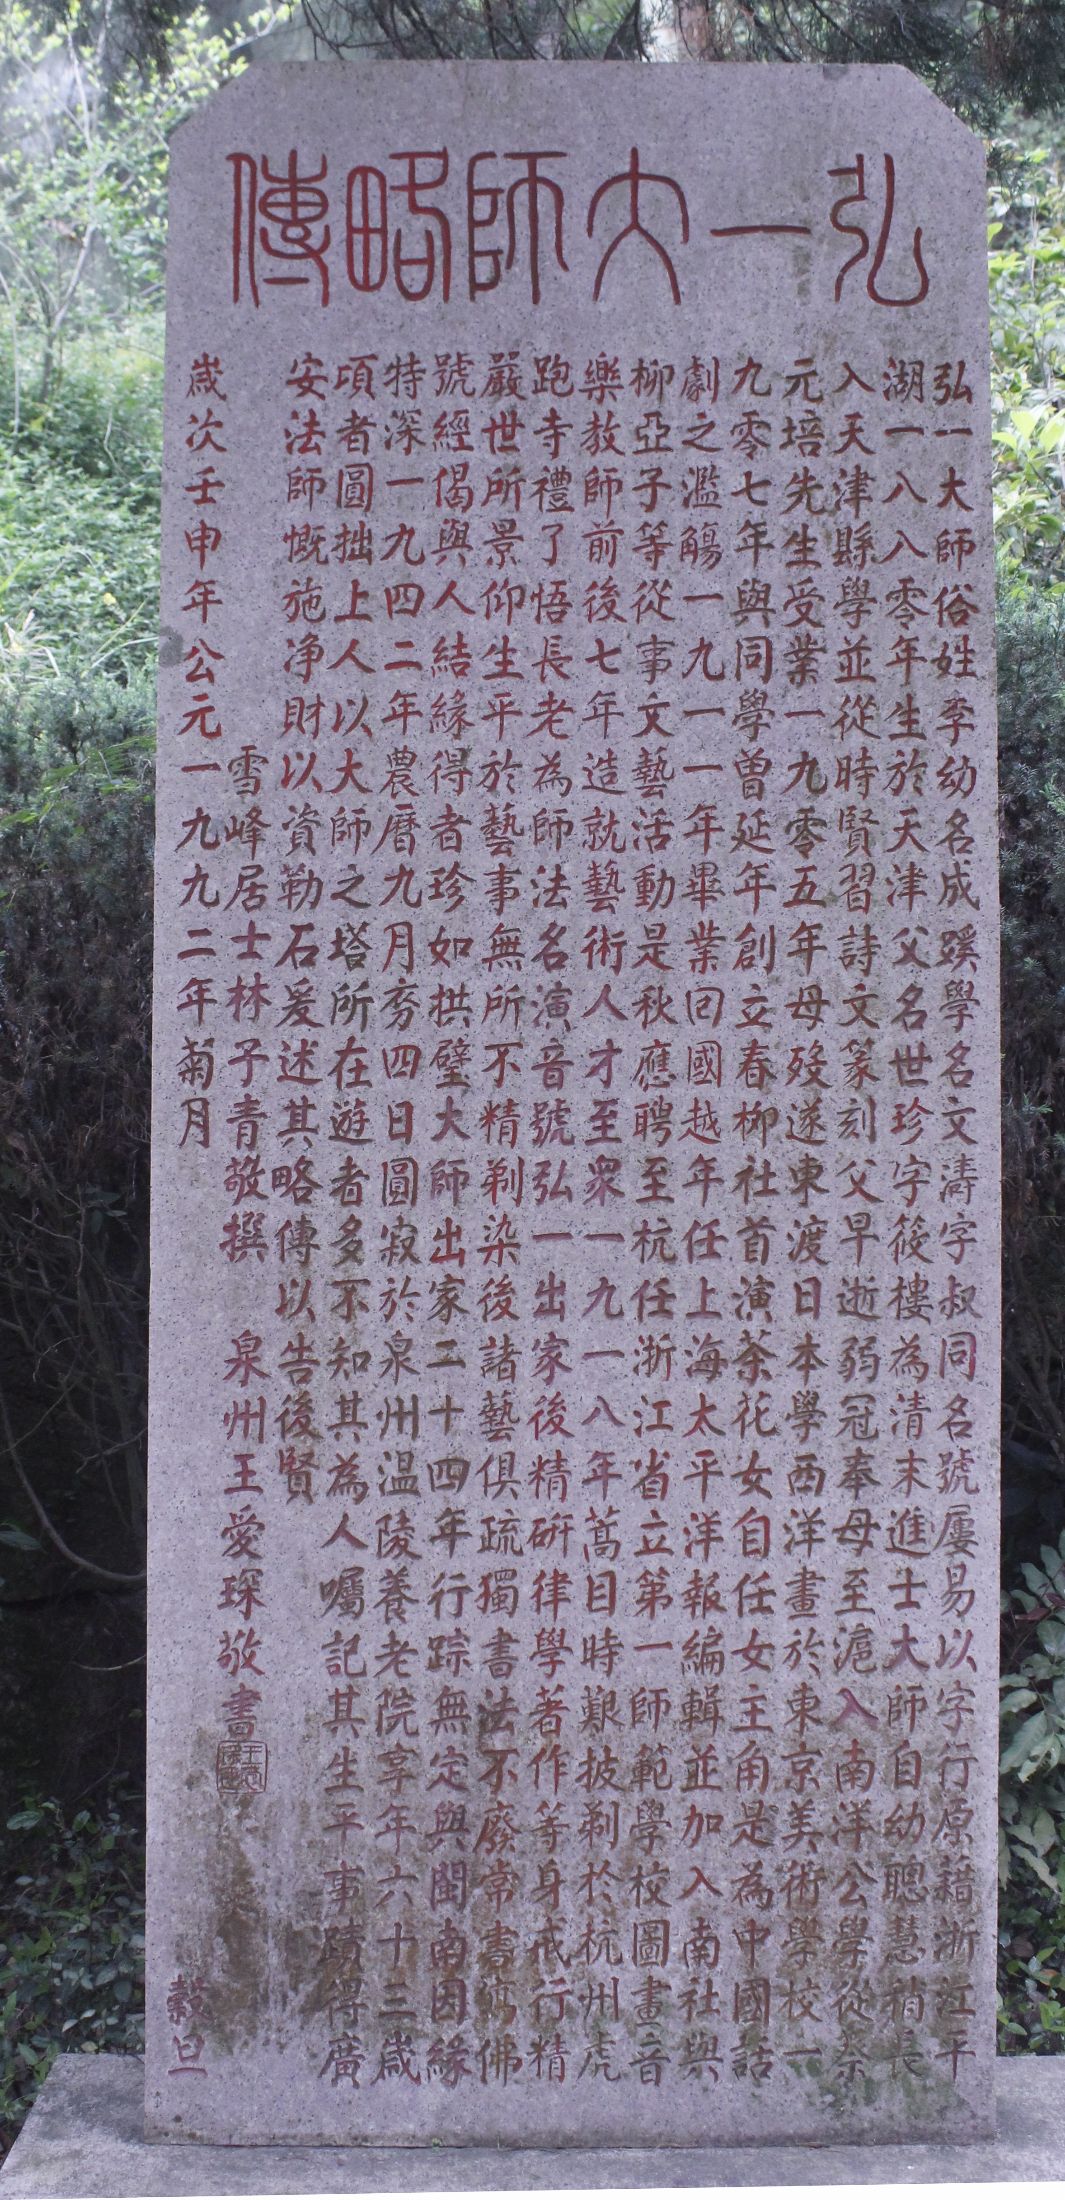 弘一大師略傳
弘一大師俗姓李幼名成蹊學名文濤字叔同名號屢易以字行原籍浙江平
湖一八八零年生於天津父名世珍字筱樓為清末進士大師自幼聰慧稍長
入天津縣學並從時賢習詩文篆刻父早逝弱冠奉母至滬入南洋公學從蔡
元培先生受業一九零五年母歿遂東渡日本學西洋畫於東京美術學校一
九零七年與同學曾延年創立春柳社首演茶花女自任女主角是為中國話
劇之濫觴一九一一年畢業回國越年任上海太平洋報編輯並加入南社與
柳亞子等從事文藝活動是秋應聘至杭任浙江省立第一師範學校圖畫音
樂教師前後七年造就藝術人才至眾一九一八年蒿目時艱披剃於杭州虎
跑寺禮了悟長老為師法名演音號弘一出家後精研律學著作等身戒行精
嚴世所景仰生平於藝事無所不精剃染後諸藝俱疏獨書法不廢常書寫佛
號經偈與人結緣得者珍如拱璧大師出家二十四年行踪無定與閩南因緣
特深一九四二年農曆九月夯四日圓寂於泉州温陵養老院享年六十三歲
項者圓拙上人以大師之塔所在遊者多不知其為人囑記其生平事蹟得廣
安法師慨施净財以資勒石爰述其略傳以告後賢
雪峰居士林子青敬撰 泉州王愛琛敬書
歲次壬申年公元一九九二年菊月 穀旦